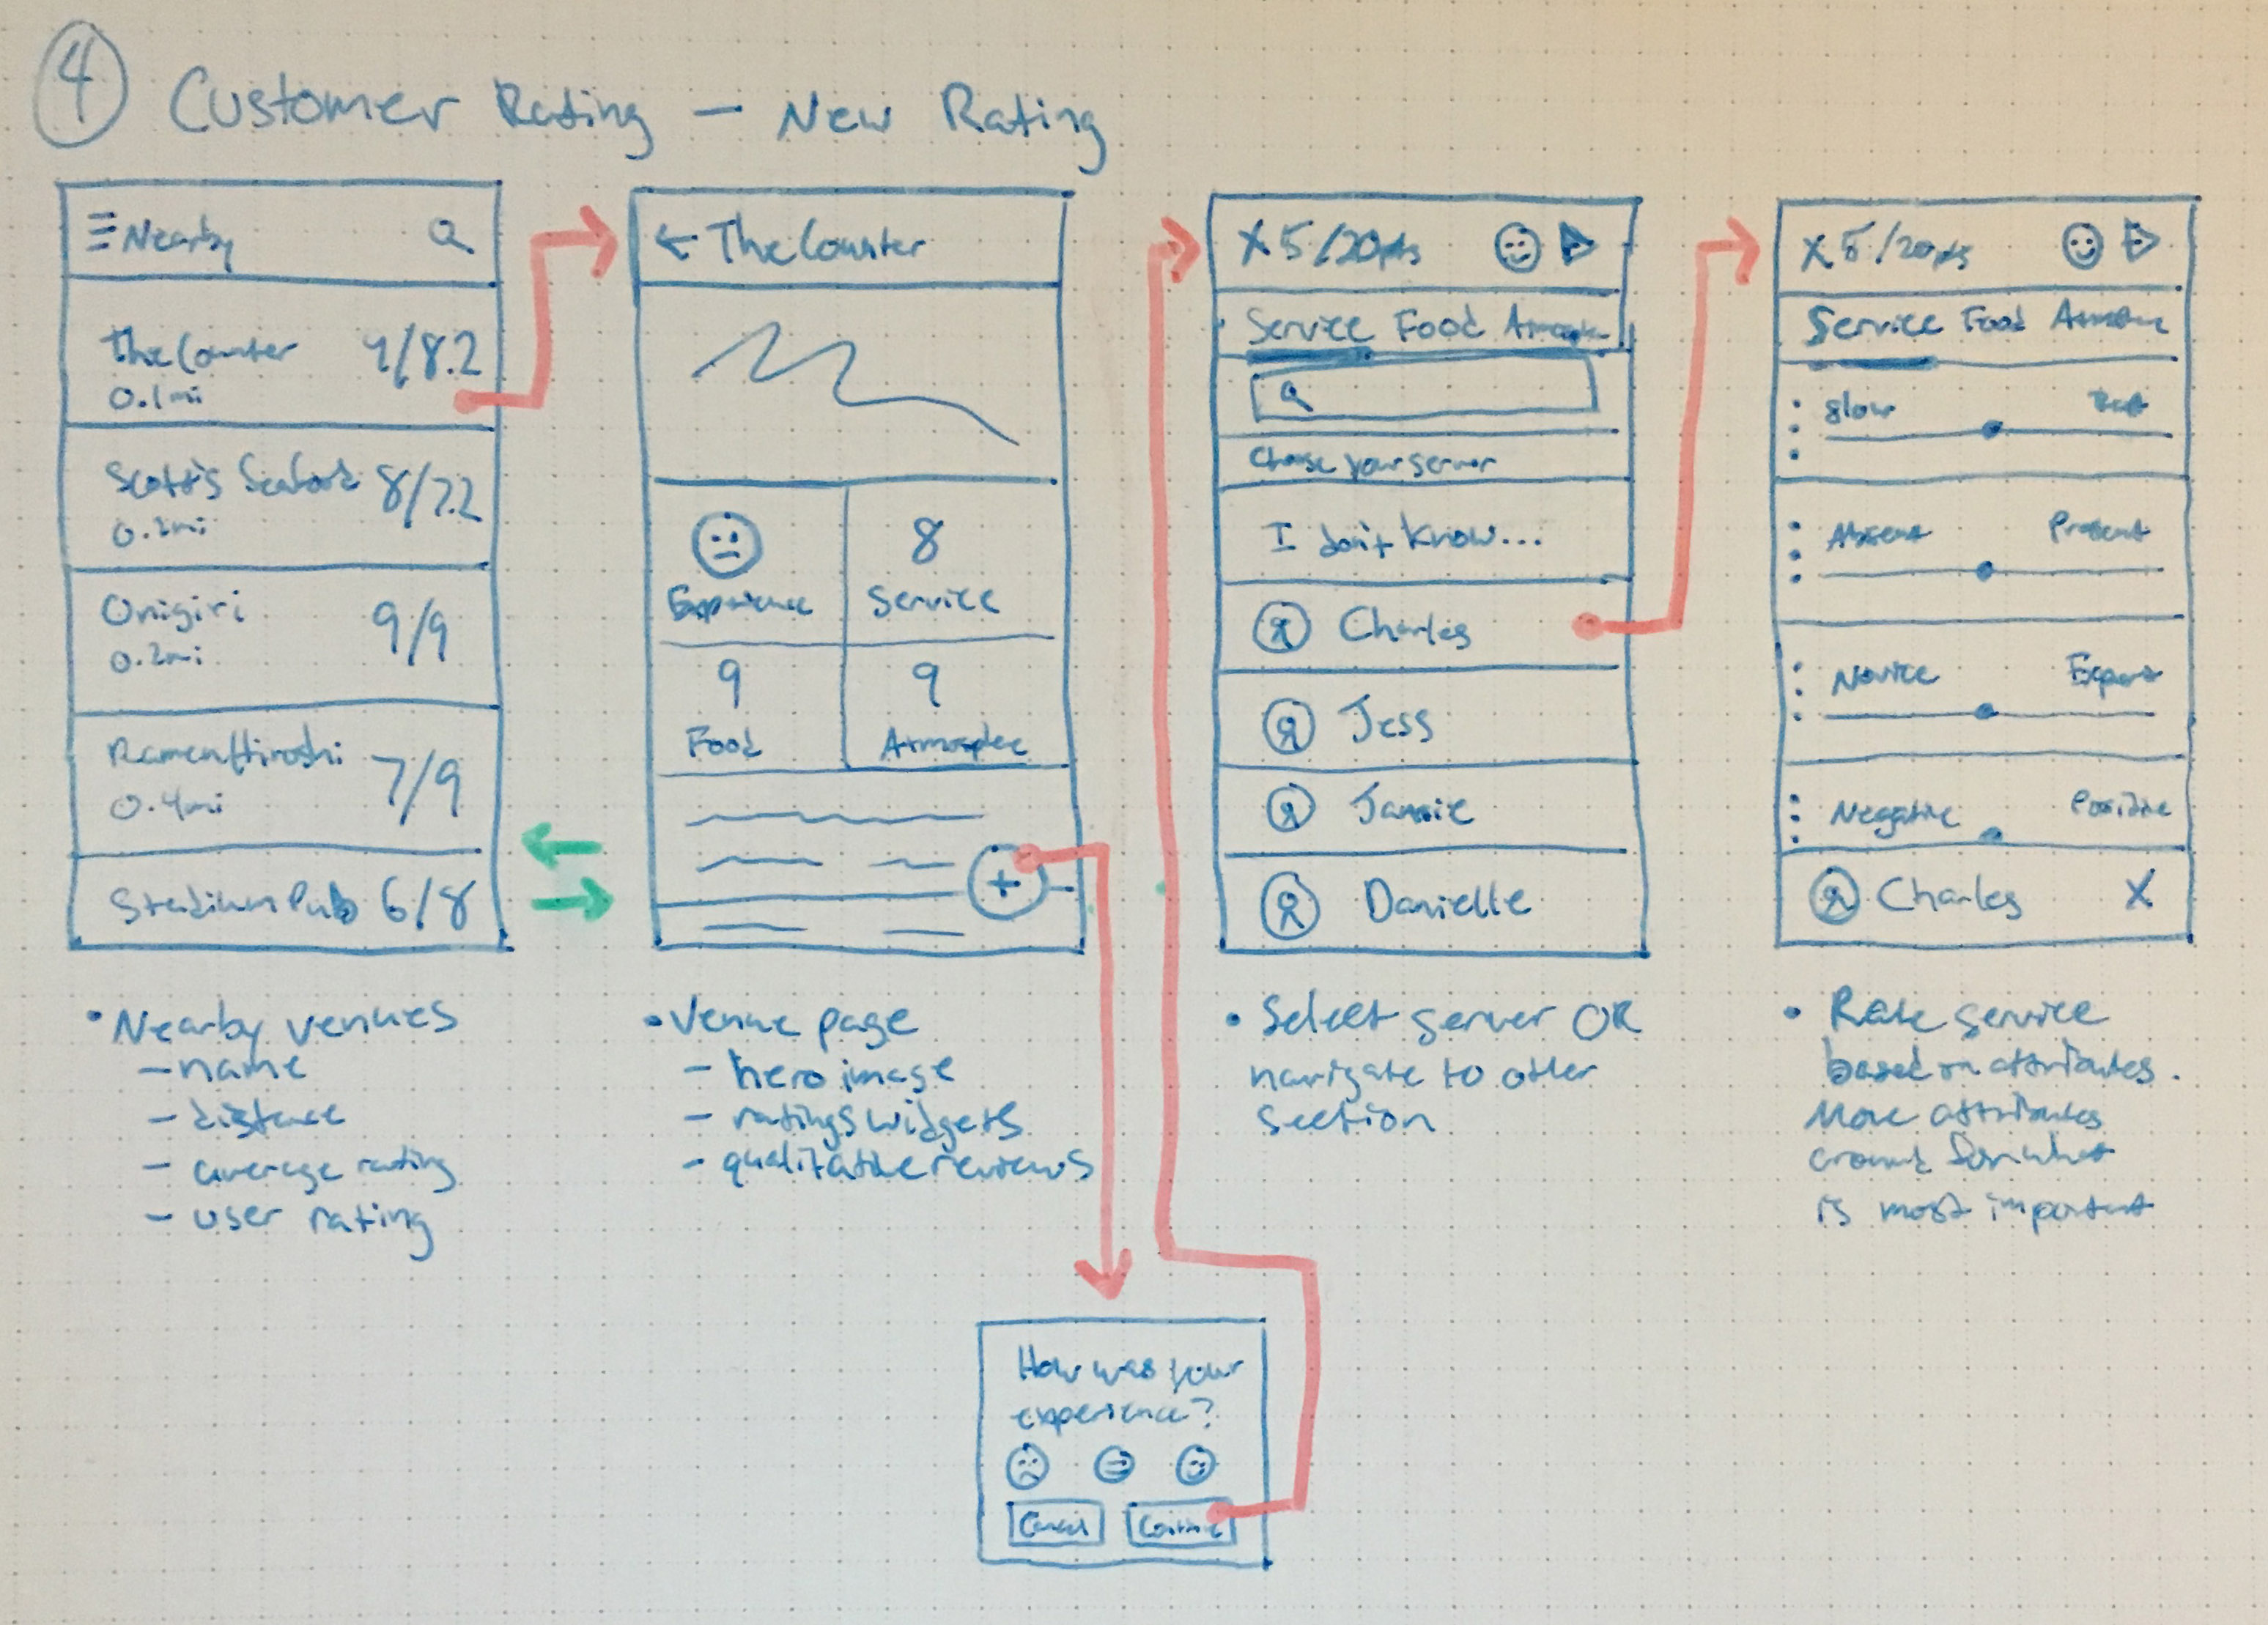 4 Customer Rating – New Rating
Nearby
The Counter 9/8.2
0.1mi
Scott's Seafood 8/7.2
0.2mi
Onigiri 9/9
0.2mi
Ramen Hiroshi 7/9
0.4mi
Stadium Pub 6/8
• Nearby venues
– name
– distance
– average rating
– user rating
← The Counter
Experience
8
Service
9
Food
9
Atmosphere
+
• Venue page
– hero image
– ratings widgets
– qualitative reviews
How was your
experience?
Cancel Continue
X 5/20pts
Service Food
Choose your server
I don't know...
Charles
Jess
Jannie
Danielle
• Select server OR
navigate to other
section
X 5/20pts
Service Food
Slow Fast
Absent Present
Novice Expert
Negative Positive
Charles X
• Rate service
based on attributes.
More attributes
around
is most important